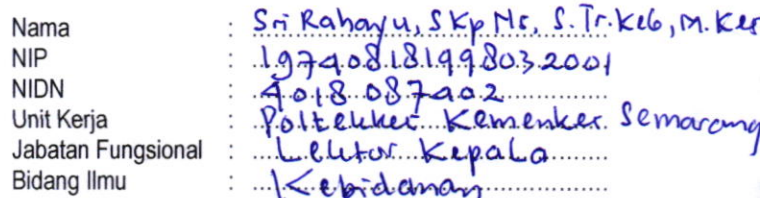 Nama : Sri Rahayu, SKp Ns, S.Tr.Keb, M.Kes
NIP : 197408181998032001
NIDN : 4018087402
Unit Kerja : Poltekkes Kemenkes Semarang
Jabatan Fungsional : Lektor Kepala
Bidang Ilmu : Kebidanan